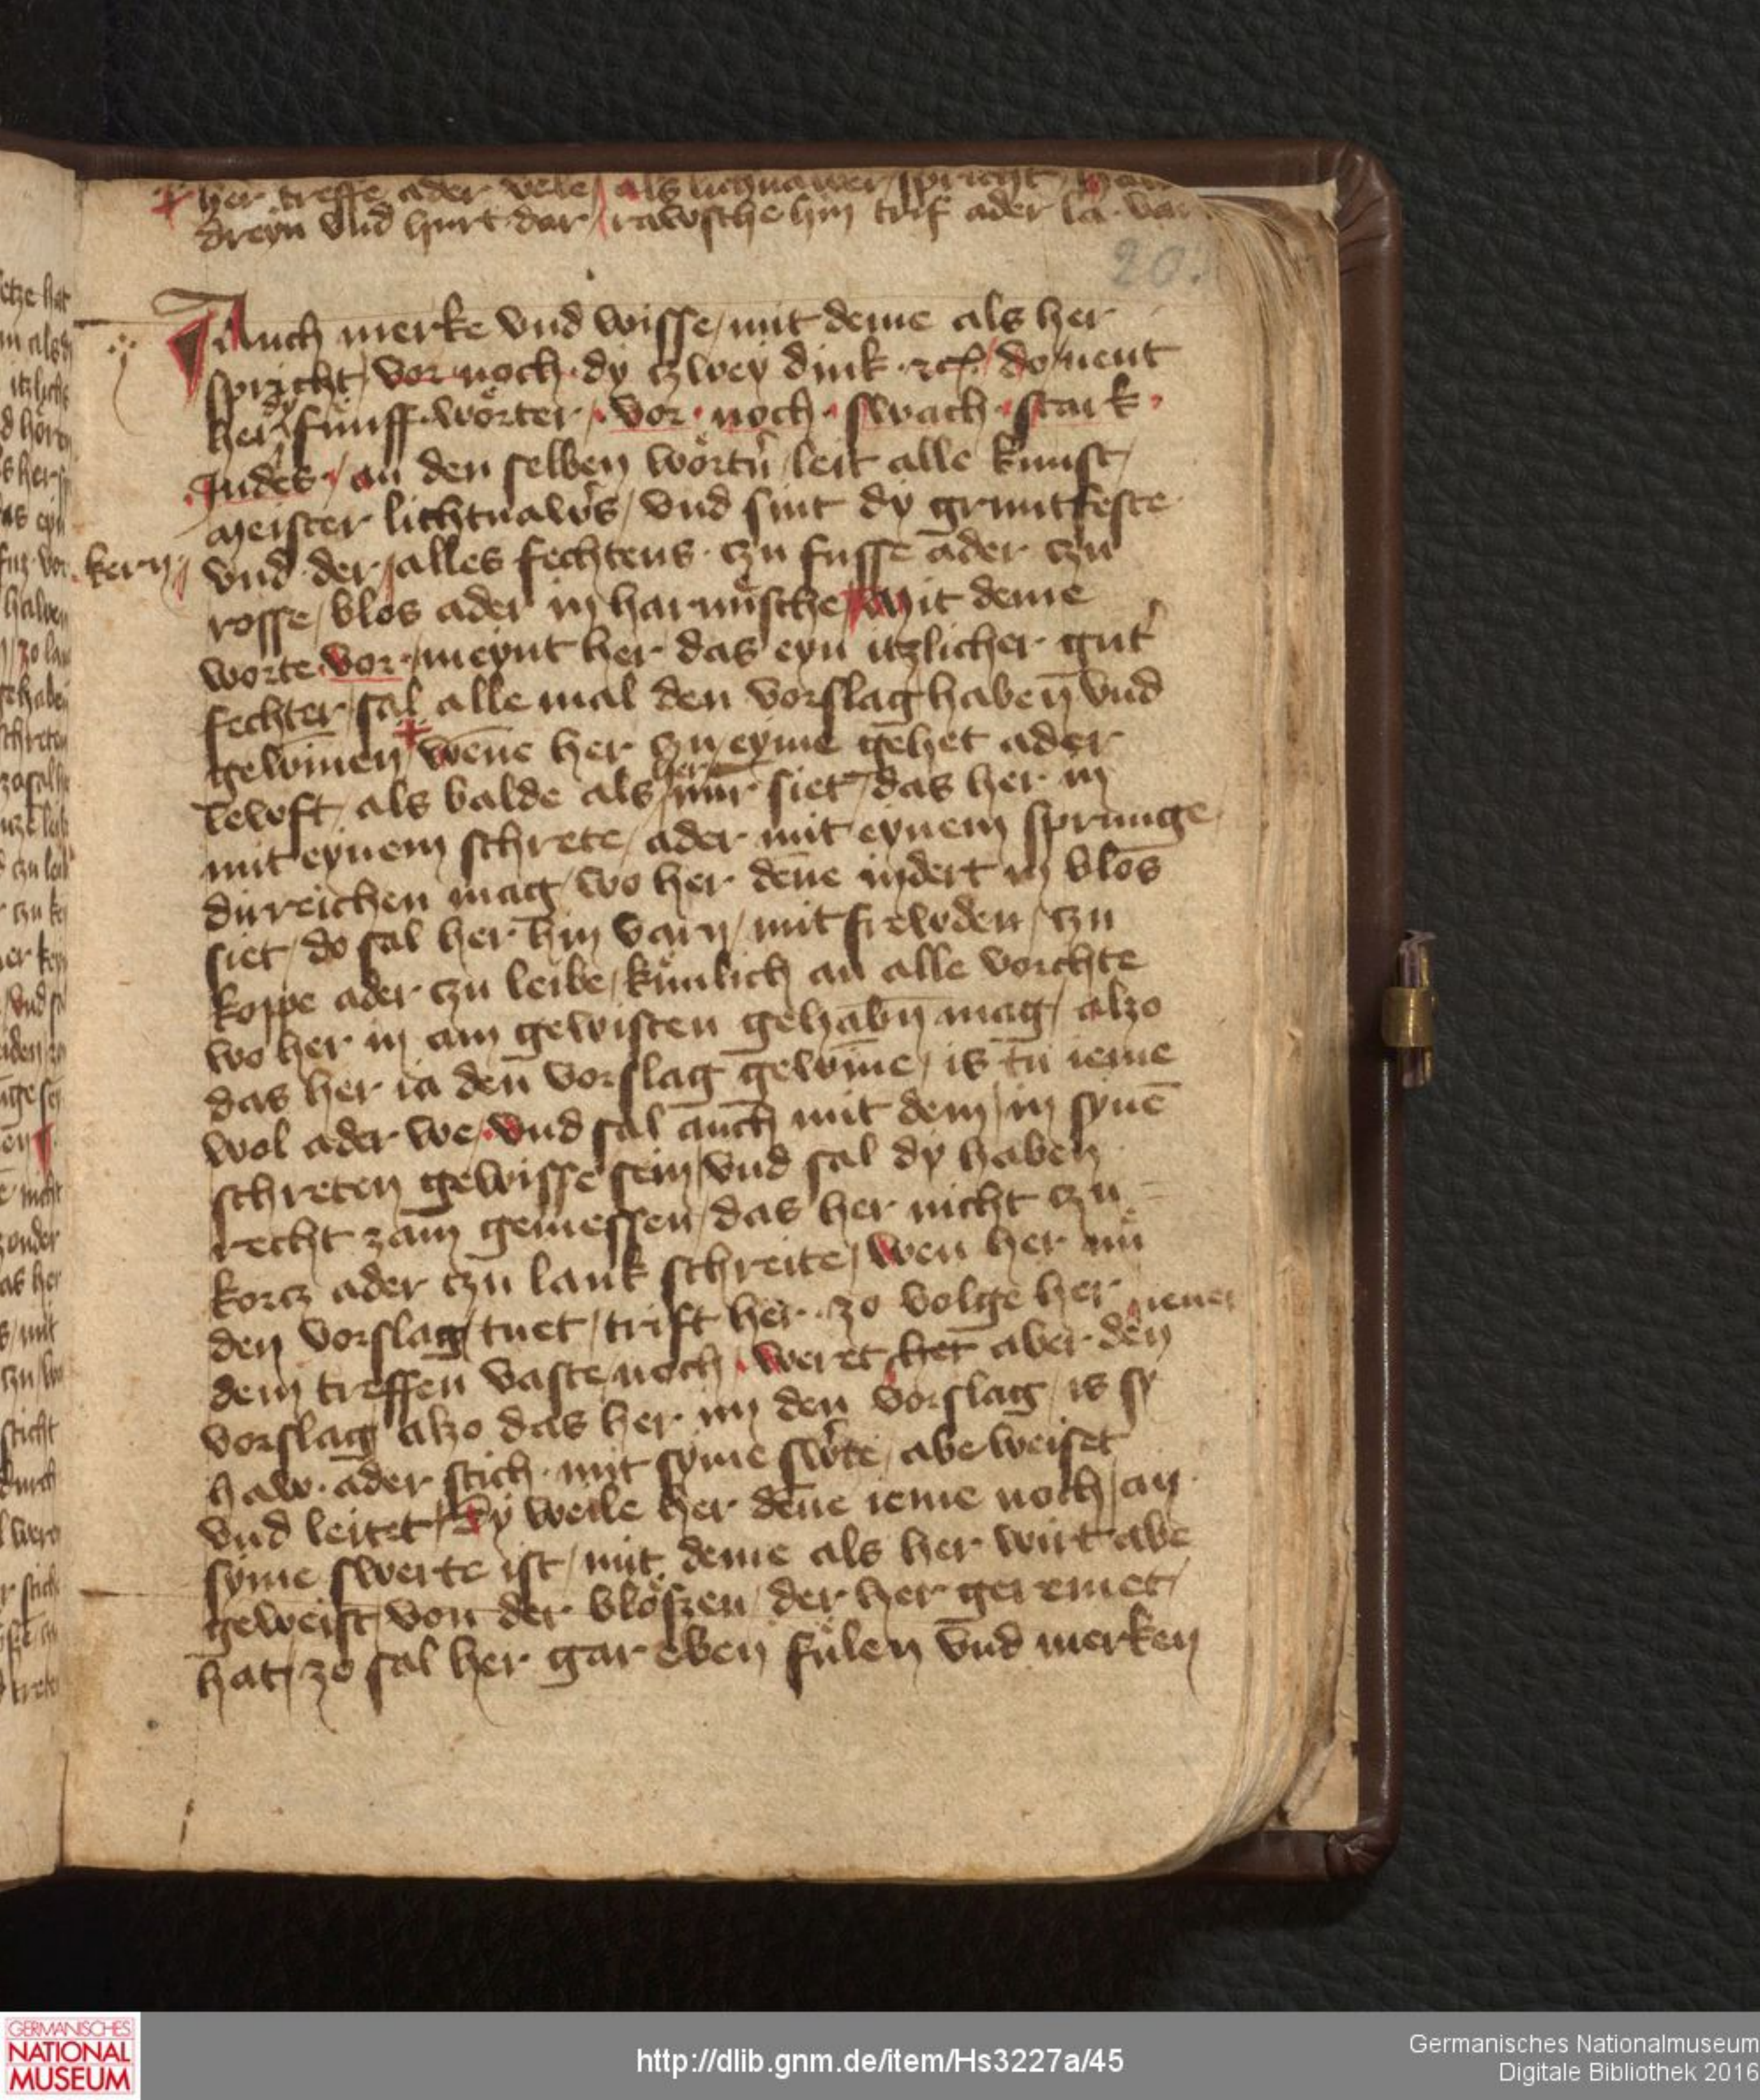 her treffe ader vele / als lichnawer spricht /
dreyn vnd hurt dar / rawsche hin trif ader la var
20
Auch merke vnd wisse / mit deme als her
spricht / vor noch dy czwey dink · ꝛcͣ / do nent
her dy fünff wörter / vor · noch · swach · stark ·
Indes · / an den selben wörtñ / leit alle kunst /
meister lichtnaw̑s / vnd sint dy gruntfeste
kern / vnd der / alles fechtens · czu fusse ader czu
rosse / blos ader in harnüsche / Mit deme
worte · vor · / meynt her das eyn itzlicher gut̕
fechter / sal alle mal den vorslag haben̄ vnd
gewīnen / wēne her czu eyme gehet ader
lewft / als balde als her nür siet / das her in
mit eynem schrete / ader mit eynem sprunge
dirreichen mag / wo her dēne indert in blos
siet / do sal her hin varn / mit frewden / czu
koppe ader czu leibe / künlich an alle vorchte
wo her in am gewisten gehabn̄ mag / alzo
das her ia den vorslag gewīne / is tu ieme
wol ader we / vnd sal auch mit dem / in synē
schreten gewisse sein / vnd sal dy haben
recht zam gemessen / das her nicht czu
korcz ader czu lank schreite / wen her nü
den vorslag tuet / trift her · zo volge her
dem treffen vaste noch / weret her iener aber den
vorslag alzo das her im den vorslag / is sy
haw · ader stich · mit syme sw̕te / abeweiset
vnd leitet / Dy weile her dēne ieme noch / an
syme swerte ist / mit deme als her wirt abe
geweist / von der blößen / der her geremet /
hat / zo sal her gar eben fülen vnd merken
GERMANISCHES
NATIONAL
MUSEUM
http://dlib.gnm.de/item/Hs3227a/45
Germanisches Nationalmuseum
Digitale Bibliothek 2016